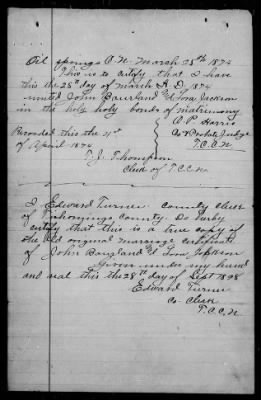 Oil Springs C.N. March 28th 1874
This is to certify that I have
this the 28th day of March A.D. 1874
united John Bourland & Lora Jackson
in the holy holy bonds of matrimony
O P Harris
Co & Probate Judge
T.C.C.N
Recorded this the 21st
of April 1874
T. J. Thompson
Clerk of T C C N
I Edward Turner county clerk
of Tishomingo County. Do hereby
certify that this is a true copy of
the old original marriage certificate
of John Bourland & Lora Jackson
Given under my hand
and seal this the 28th day of Sept 1898
Edward Turner
Co Clerk
T.C.C.N